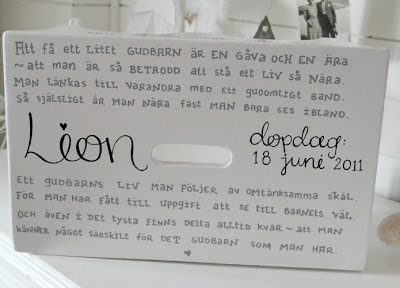 Att få ett litet gudbarn är en gåva och en ära
~ att man är så betrodd att stå ett liv så nära.
Man länkas till varandra med ett gudomligt band.
Så själsligt är man nära fast man bara ses ibland.
Lion
dopdag:
18 juni 2011
Ett gudbarns liv man följer av omtänksamma skäl.
För man har fått till uppgift att se till barnets väl.
Och även i det tysta finns detta alltid kvar ~ att man
känner något särskilt för det gudbarn som man har.